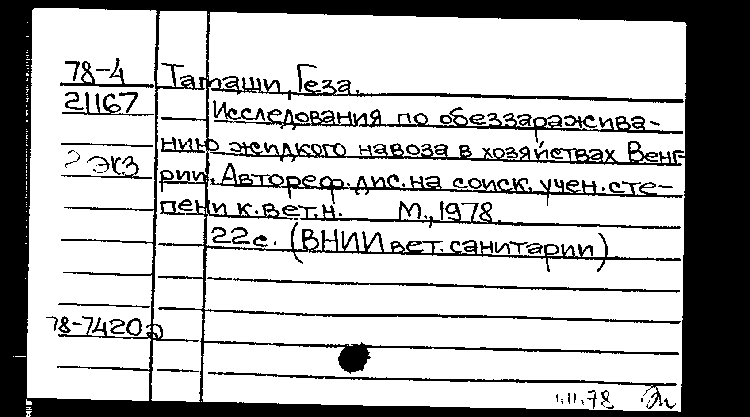 78-4 Таташи, Геза.
21167 Исследования по обеззаражива-
нию жидкого навоза в хозяйствах Венг-
2 экз рии. Автореф. дис. на соиск. учен. сте-
пени к. вет. н. М., 1978.
22с. (ВНИИ вет. санитарии)
78-7420а
1.11.78